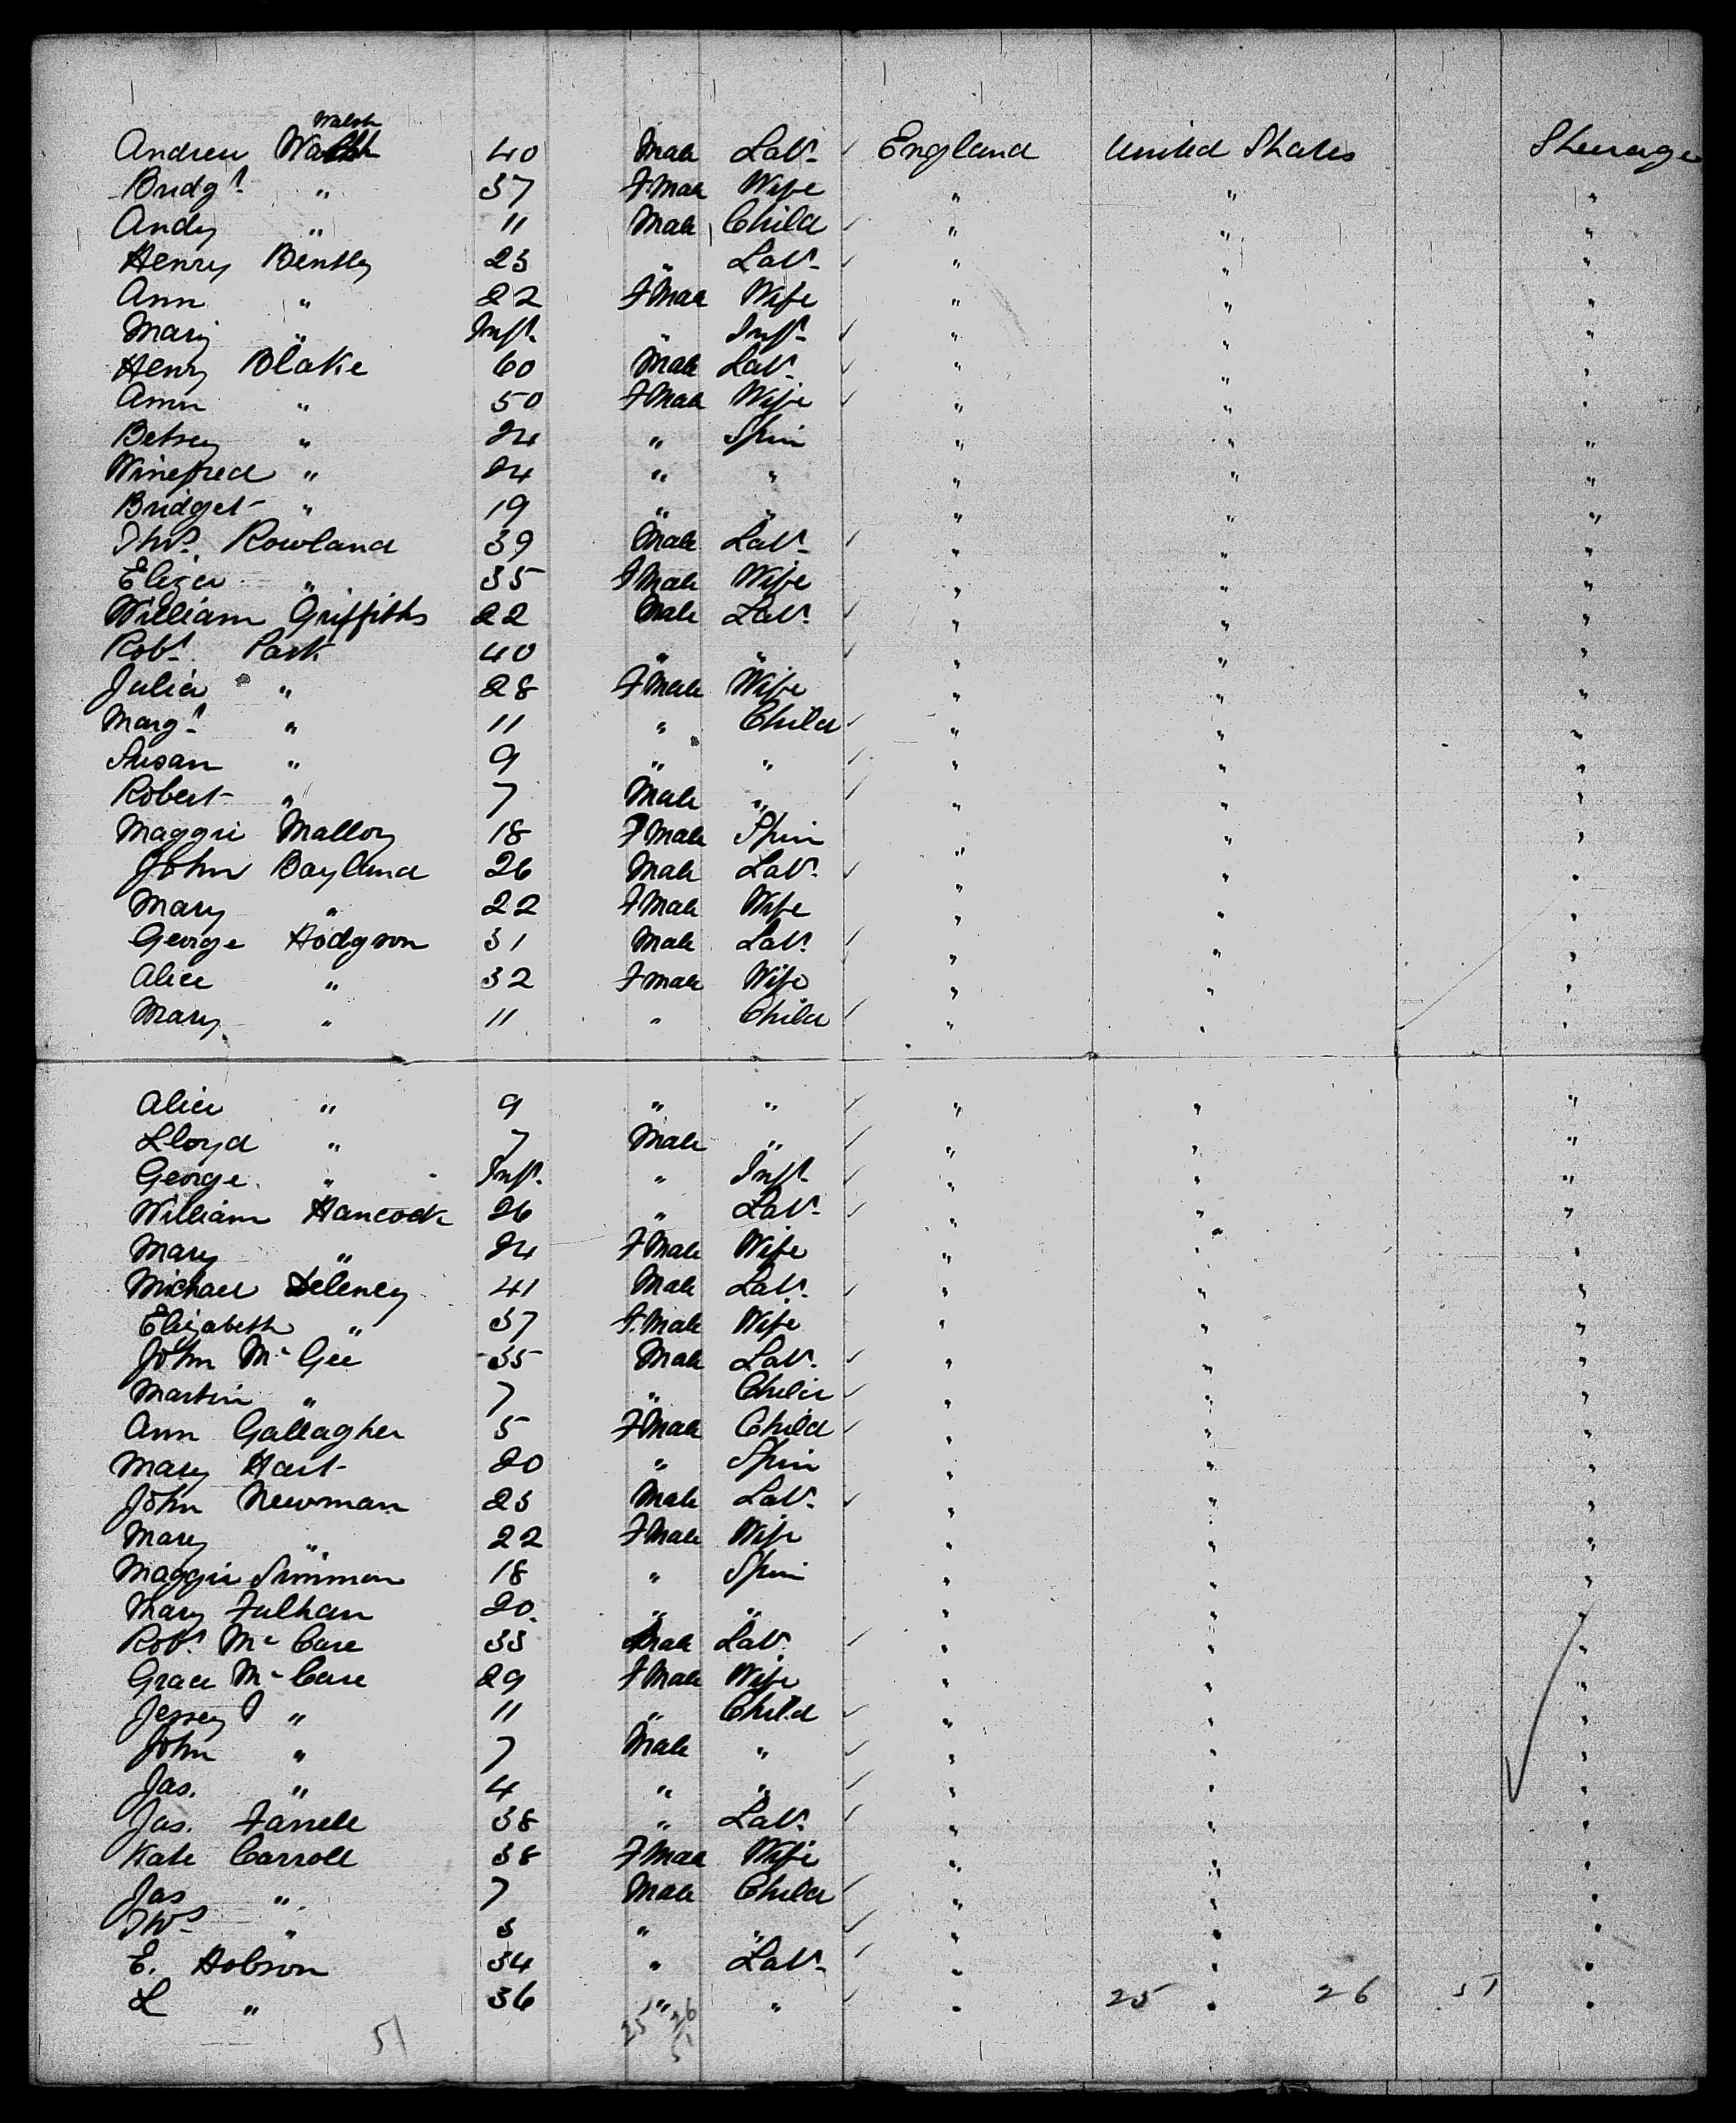 Walsh
Andrew Walsh 40 Male Labr. England United States Steerage
Bridgt. " 37 FMale Wife " " "
Andy " 11 Male Child " " "
Henry Bently 23 " Labr. " " "
Ann " 22 FMale Wife " " "
Mary " Inft. " Inft. " " "
Henry Blake 60 Male Labr. " " "
Ann " 50 FMale Wife " " "
Betsey " 24 " Spin " " "
Winefred " 24 " " " " "
Bridget " 19 " " " " "
Thos. Rowland 39 Male Labr. " " "
Eliza " 35 FMale Wife " " "
William Griffiths 22 Male Labr. " " "
Robt. Park 40 " " " " "
Julia " 28 FMale Wife " " "
Margt. " 11 " Child " " "
Susan " 9 " " " " "
Robert " 7 Male " " " "
Maggie Malloy 18 FMale Spin " " "
John Bayland 26 Male Labr. " " "
Mary " 22 FMale Wife " " "
George Hodgson 31 Male Labr. " " "
Alice " 32 FMale Wife " " "
Mary " 11 " Child " " "
Alice " 9 " " " " "
Lloyd " 7 Male " " " "
George " Inft. " Inft. " " "
William Hancock 26 " Labr. " " "
Mary " 24 FMale Wife " " "
Michael Deleney 41 Male Labr. " " "
Elizabeth " 37 F.Male Wife " " "
John Mc Gee 35 Male Labr. " " "
Martin " 7 " Child " " "
Ann Gallagher 5 FMale Child " " "
Mary Hart 20 " Spin " " "
John Newman 23 Male Labr. " " "
Mary " 22 FMale Wife " " "
Maggie 18 " Spin " " "
Mary Fulhan 20 " " " " "
Robt. Mc 33 Male Labr. " " "
Grace Mc 29 FMale Wife " " "
Jessey " 11 " Child " " "
John " 7 Male " " " "
Jas. " 4 " " " " "
Jas. Farrell 38 " Labr. " " "
Kate Carroll 38 FMale Wife " " "
Jas " 7 Male Child " " "
Thos " 3 " " " " "
E. Hobson 34 " Labr. " " "
L " 36 " " " 25 " 26 51 "
51 25 26
51